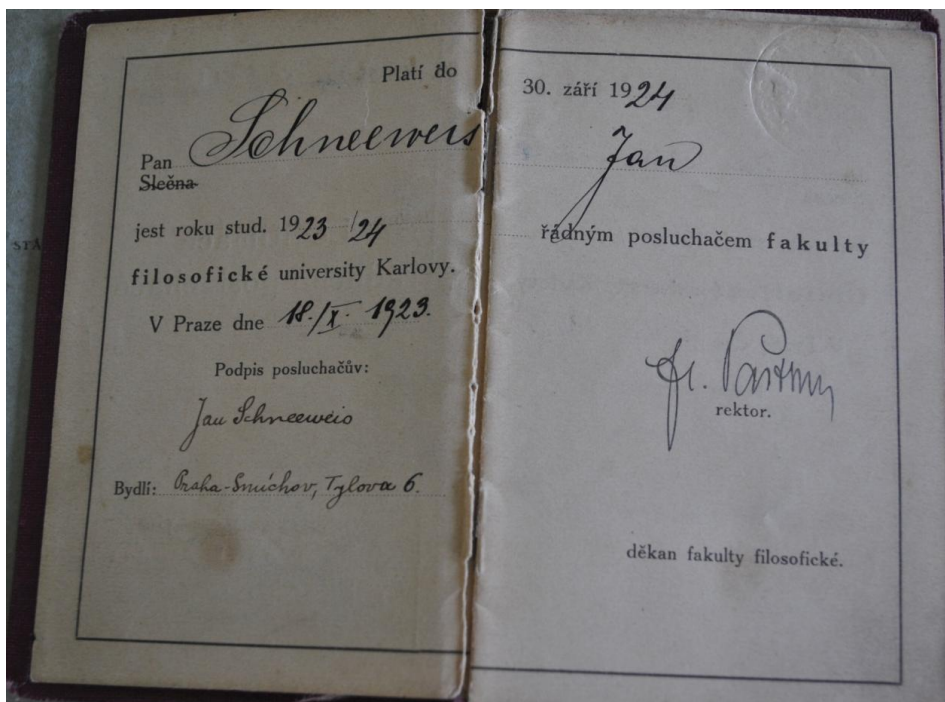 Platí do 30. září 1924
Pan Schneeweis Jan
Slečna
jest roku stud. 1923/24 řádným posluchačem fakulty
filosofické university Karlovy.
V Praze dne 18./X. 1923.
Podpis posluchačův:
Jan Schneeweis
Bydlí: Praha-Smíchov, Tylova 6.
Fr.
rektor.
děkan fakulty filosofické.